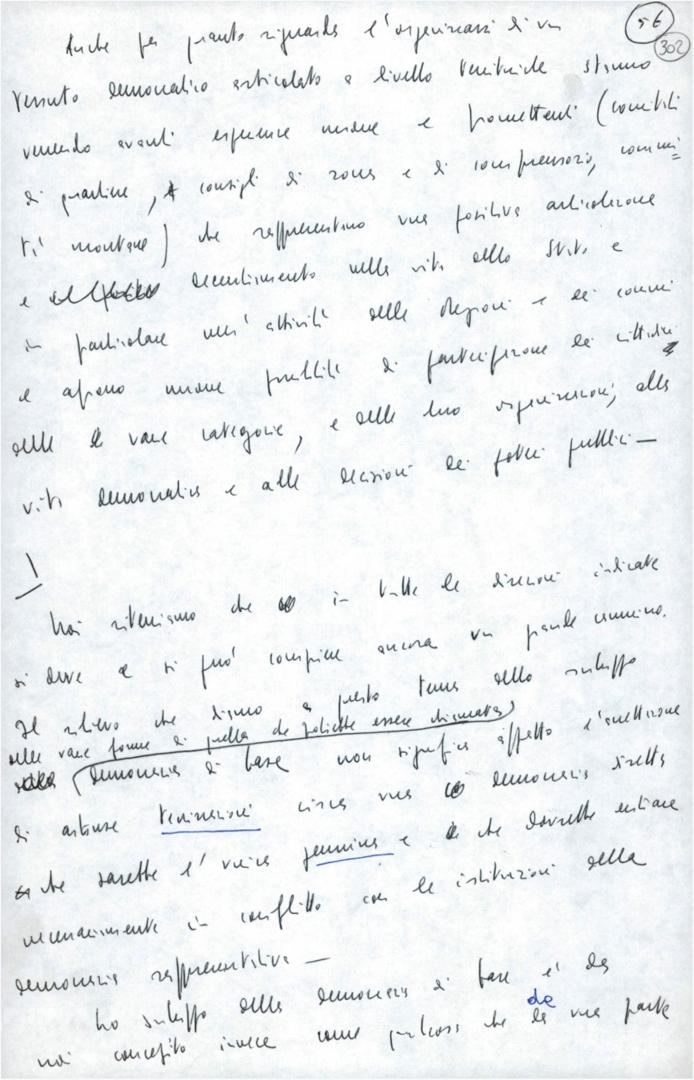 56
302
Anche per quanto riguarda l'organizzarsi di un
tessuto democratico articolato a livello territoriale stanno
venendo avanti esperienze nuove e promettenti (comitati
di quartiere, consigli di zona e di comprensorio, comuni
tà montane) che rappresentano una positiva articolazione
e decentramento nella vita dello Stato e
in particolare nell'attività delle Regioni e dei comuni
e aprono nuove possibilità di partecipazione dei cittadini
delle varie categorie, e delle loro organizzazioni, alla
vita democratica e alle decisioni dei poteri pubblici —
Noi riteniamo che in tutte le direzioni indicate
si deve e si può compiere ancora un grande cammino.
Il rilievo che diamo a questo tema dello sviluppo
delle varie forme di quella che potrebbe essere chiamata
democrazia di base non significa affatto l'accettazione
di astruse teorizzazioni circa una democrazia diretta
che sarebbe l'unica genuina e che dovrebbe entrare
necessariamente in conflitto con le istituzioni della
democrazia rappresentativa —
Lo sviluppo della democrazia di base è da
noi concepito invece come processo che da una parte